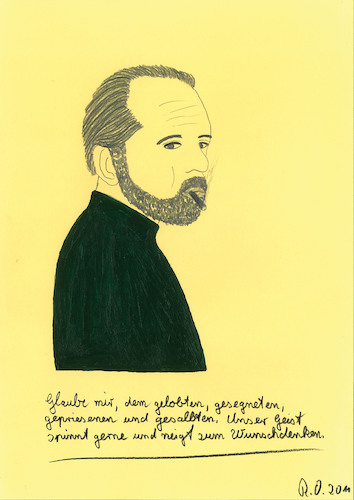 Glaube mir, dem gelobten, gesegneten,
gepriesenen und gesalbten. Unser Geist
spinnt gerne und neigt zum Wunschdenken.
R.O. 2011